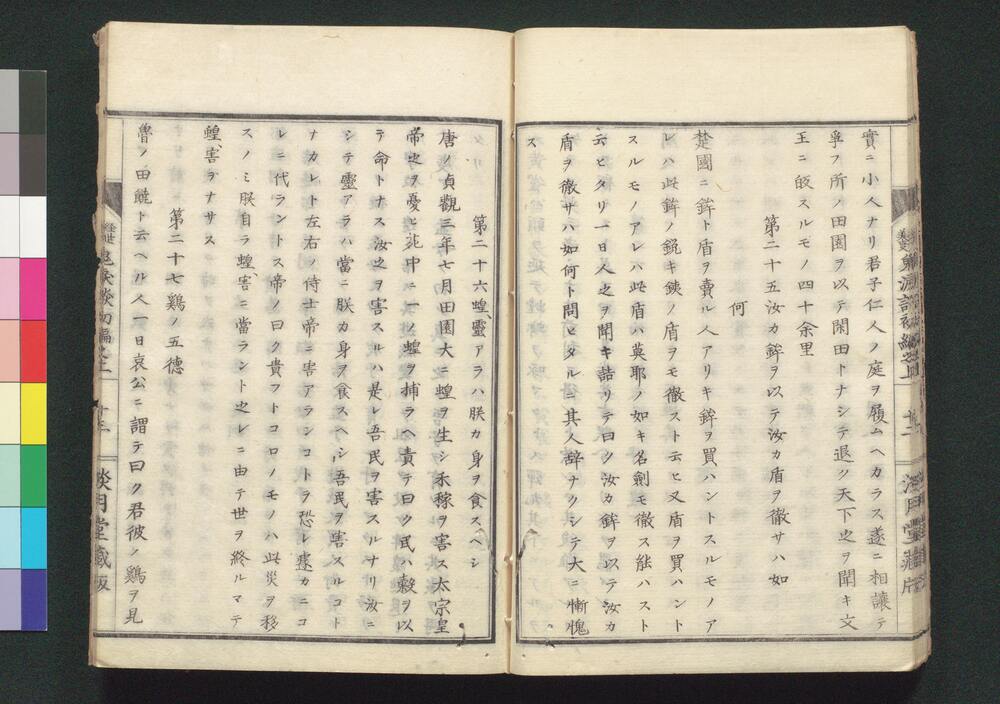 實ニ小人ナリ君子仁人ノ庭ヲ履ムヘカラス遂ニ相讓テ
爭フ所ノ田園ヲ以テ閑田トナシテ退ク天下之ヲ聞キ文
王ニ皈スルモノ四十余里
第二十五汝カ鉾ヲ以テ汝カ盾ヲ徹サハ如
何
楚國ニ鉾ト盾ヲ賣ル人アリキ鉾ヲ買ハントスルモノア
レハ此鉾ノ銳キ鐵ノ盾ヲモ徹スト云ヒ又盾ヲ買ハント
スルモノアレハ此盾ハ莫耶ノ如キ名劍モ徹ス能ハスト
云ヒタリ一日人之ヲ聞キ詰リテ曰ク汝カ鉾ヲ以テ汝カ
盾ヲ徹サハ如何ト問ヒタルニ其人辞ナクシテ大ニ慚愧
ス
第二十六蝗靈アラハ朕カ身ヲ食スヘシ
唐ノ貞觀三年七月田園大ニ蝗ヲ生シ禾稼ヲ害ス太宗皇
帝之ヲ憂ヒ苑中ニ一ノ蝗ヲ捕ラヘ責テ曰ク民ハ穀ヲ以
テ命トナス汝之ヲ害スルハ是レ吾民ヲ害スルナリ汝ニ
シテ靈アラハ當ニ朕カ身ヲ食スヘシ吾民ヲ害スルコト
ナカレト左右ノ侍士帝ニ害アランコトヲ恐レ遽カニコ
レニ代ラントス帝ノ曰ク貴フトコロノモノハ此災ヲ移
スノミ朕自ラ蝗害ニ當ラント之レニ由テ世ヲ終ルマテ
蝗害ヲナサス
第二十七鷄ノ五德
魯ノ田饒ト云ヘル人一日哀公ニ謂テ曰ク君彼ノ鷄ヲ見